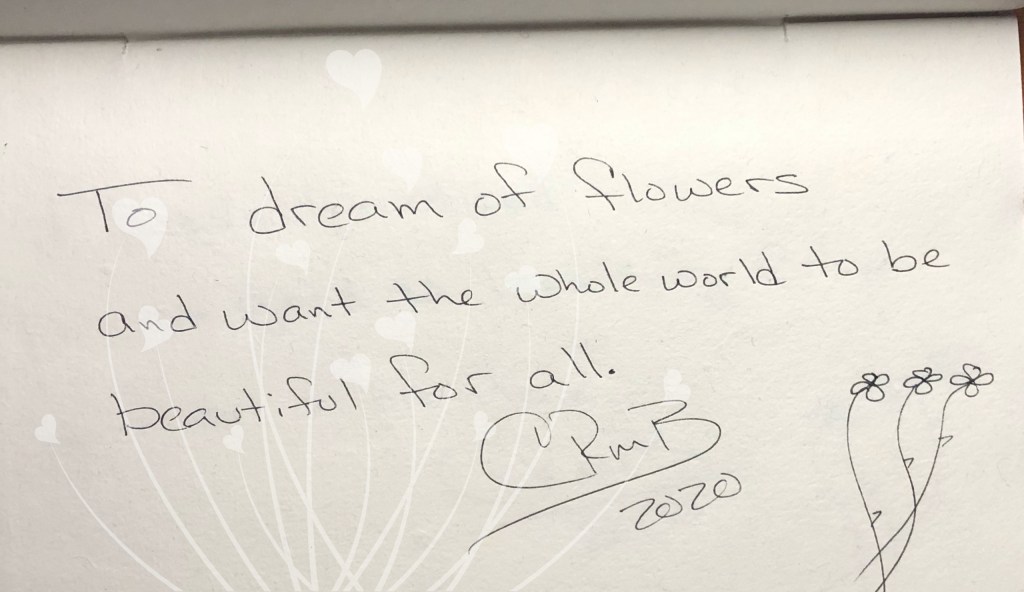 To dream of flowers
and want the whole world to be
beautiful for all.
CRmB
2020